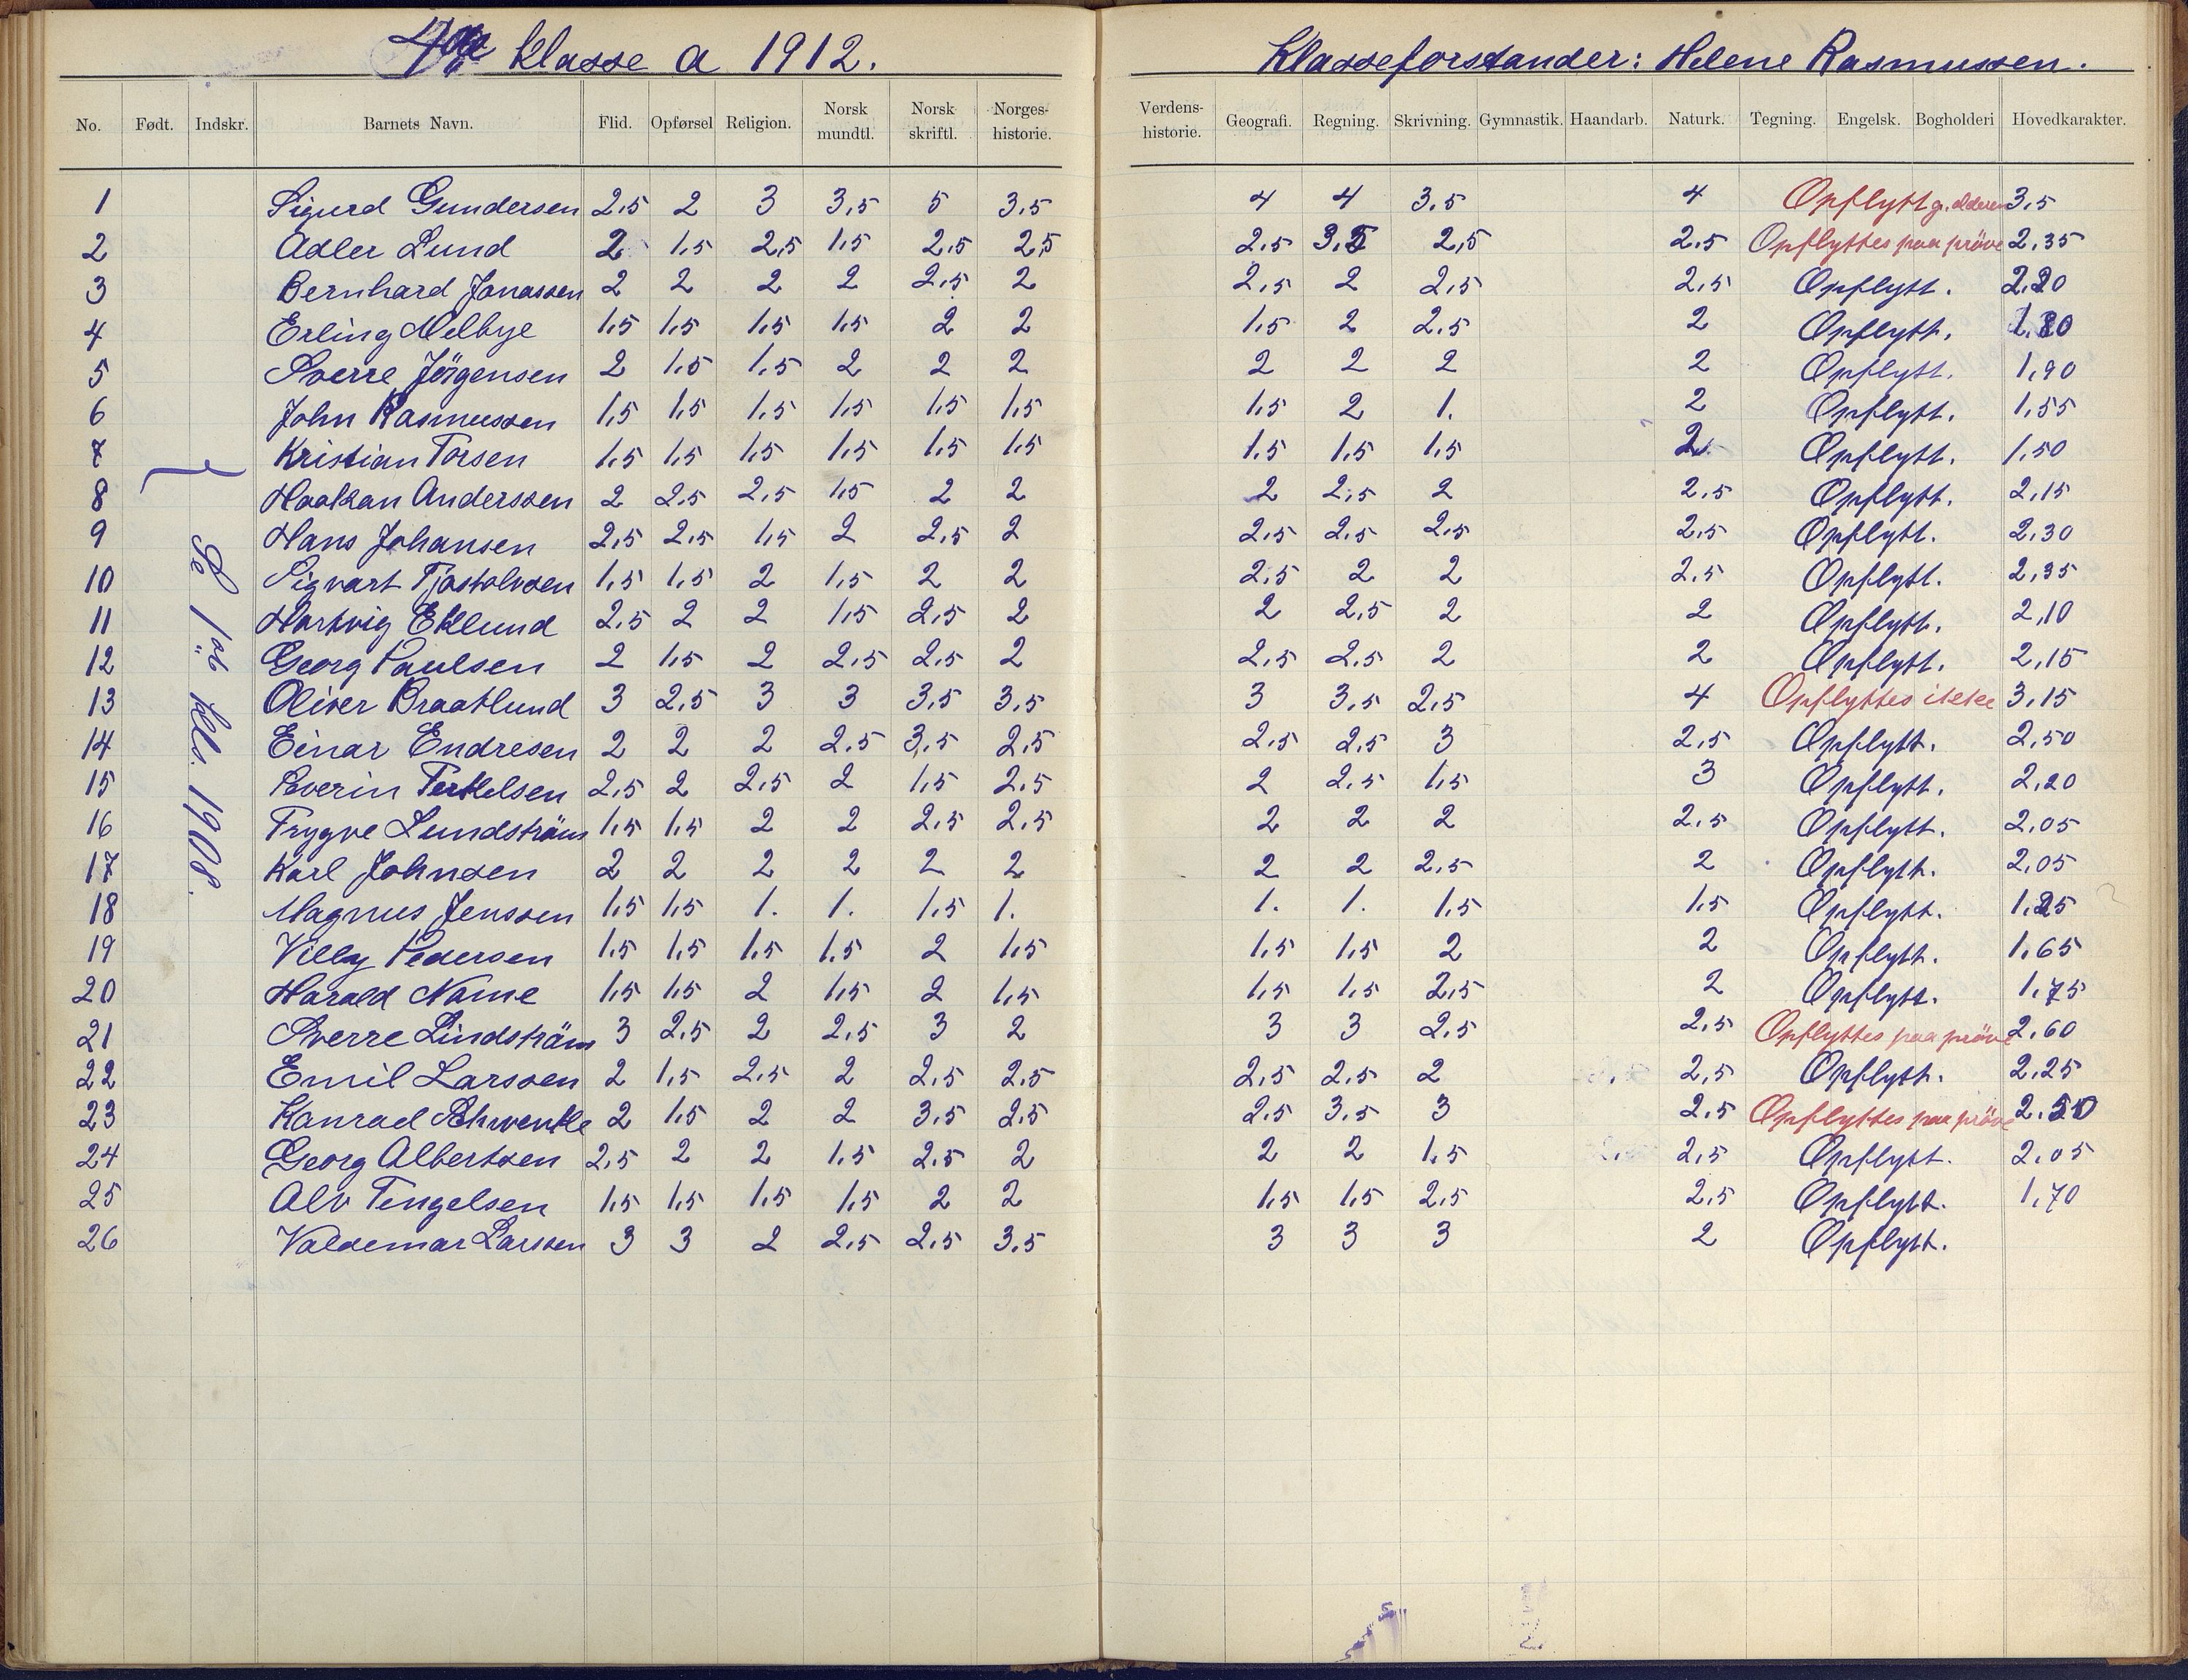 4de klasse a 1912.
Klasseforstander: Helene Rasmussen.
No. Født. Indskr. Barnets Navn. Flid. Opførsel Religion. Norsk mundtl. Norsk skriftl. Norges-historie. Verdens-historie. Geografi. Regning. Skrivning. Gymnastik. Haandarb. Naturk. Tegning. Engelsk. Bogholderi Hovedkarakter.
1 Sigurd Gundersen 2.5 2 3 3,5 5 3.5 4 4 3.5 4 Opflytt gr. alderen 3,5
2 Adler Lund 2 1.5 2,5 1.5 2,5 2,5 2.5 3.5 2,5 2.5 Opflyttes paa pröve 2,35
3 Bernhard Jonassen 2 2 2 2 2.5 2 2,5 2 2,5 2.5 Opflytt. 2,20
4 Erling Melbye 1.5 1.5 1.5 1.5 2 2 1.5 2 2.5 2 Opflytt. 1.80
5 Sverre Jörgensen 2 1.5 1.5 2 2 2 2 2 2 2 Opflytt. 1,90
6 John Rasmussen 1.5 1.5 1.5 1.5 1.5 1.5 1.5 2 1. 2 Opflytt. 1,55
7 Kristian Torsen 1.5 1.5 1.5 1.5 1.5 1.5 1.5 1.5 1.5 2 Opflytt. 1,50
8 Haakan Anderssen 2 2.5 2.5 1.5 2 2 2 2,5 2 2.5 Opflytt. 2,15
9 Hans Johansen 2,5 2.5 1.5 2 2.5 2 2.5 2.5 2.5 2.5 Opflytt. 2,30
10 Sigvart Tjøstolvsen 1.5 1.5 2 1.5 2 2 2.5 2 2 2.5 Opflytt. 2,35
11 Hartvig Eklund 2.5 2 2 1.5 2.5 2 2 2.5 2 2 Opflytt. 2,10
12 Georg Paulsen 2 1.5 2 2.5 2.5 2 2.5 2.5 2 2 Opflytt. 2,15
13 Oliver Braatlund 3 2.5 3 3 3.5 3.5 3 3.5 2.5 4 Opflyttes ikke 3,15
14 Einar Endresen 2 2 2 2.5 3.5 2.5 2.5 2.5 3 2.5 Opflytt. 2,50
15 Severin Terkelsen 2.5 2 2.5 2 1.5 2.5 2 2.5 1.5 3 Opflytt. 2,20
16 Trygve Lundström 1.5 1.5 2 2 2.5 2.5 2 2 2 2.5 Opflytt. 2,05
17 Karl Johnsen 2 2 2 2 2 2 2 2 2.5 2 Opflytt. 2,05
18 Magnus Jenssen 1.5 1.5 1. 1. 1.5 1. 1. 1. 1.5 1.5 Opflytt. 1.25
19 Villy Pedersen 1.5 1.5 1.5 1.5 2 1.5 1.5 1.5 2 2 Opflytt. 1,65
20 Harald Name 1.5 1.5 2 1.5 2 1.5 1.5 1.5 2.5 2 Opflytt. 1.75
21 Sverre Lindström 3 2.5 2 2.5 3 2 3 3 2.5 2.5 Opflyttes paa pröve 2,60
22 Emil Larssen 2 1.5 2.5 2 2.5 2.5 2.5 2.5 2 2,5 Opflytt. 2.25
23 Konrad Schwenke 2 1.5 2 2 3.5 2.5 2.5 3.5 3 2.5 Opflyttes paa pröve 2.50
24 Georg Albertsen 2.5 2 2 1.5 2.5 2 2 2 1.5 2.5 Opflytt. 2.05
25 Alv Tengelsen 1.5 1.5 1.5 1.5 2 2 1.5 1.5 2.5 2.5 Opflytt. 1,70
26 Valdemar Larssen 3 3 2 2.5 2.5 3.5 3 3 3 2 Opflytt.
Se 1ste kls. 1908.